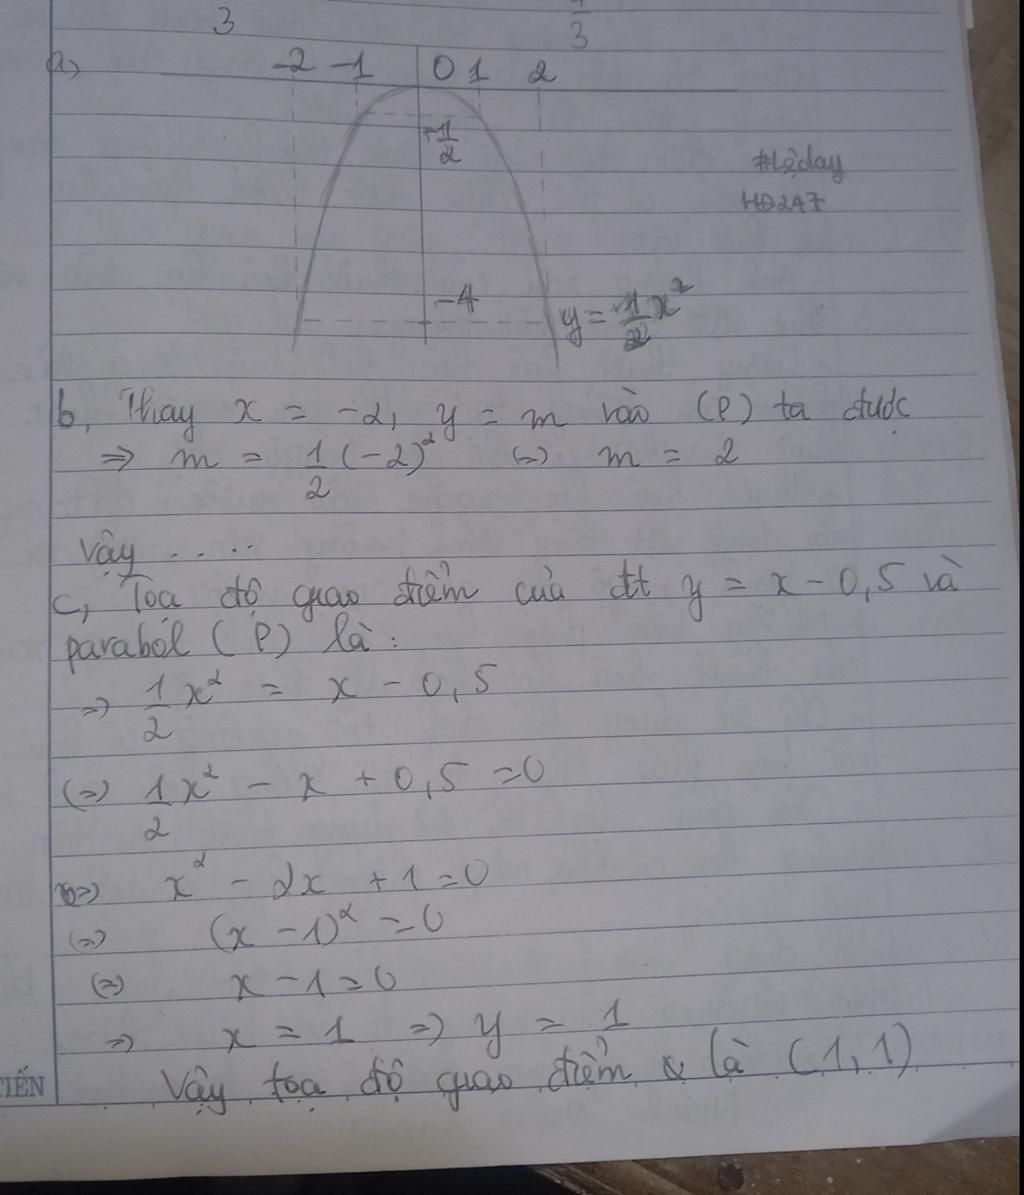 3
3
a,
-2 -1 0 1 2
-1/2
#Lệday
HD247
-4
y = -1/2 x²
b, Thay x = -2, y = m vào (P) ta được
=> m = 1/2 (-2)² (=) m = 2
Vậy ....
c, Tọa độ giao điểm của đt y = x - 0,5 và
parabol (P) là:
=> 1/2 x² = x - 0,5
(=) 1/2 x² - x + 0,5 = 0
(=) x² - 2x + 1 = 0
(=) (x - 1)² = 0
(=) x - 1 = 0
=> x = 1 => y = 1
Vậy tọa độ giao điểm là (1,1)
TIẾN